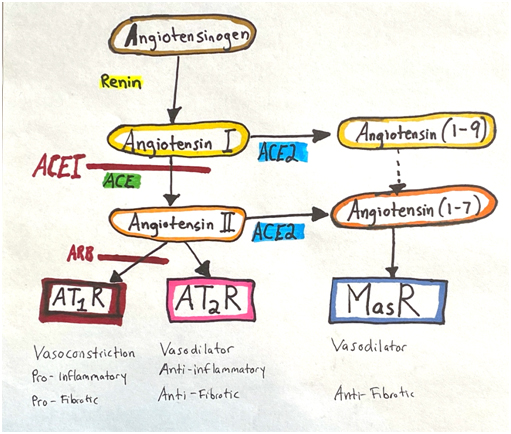 Angiotensinogen
Renin
Angiotensin I
ACE2
Angiotensin (1-9)
ACEI
ACE
Angiotensin II
ACE2
Angiotensin (1-7)
ARB
AT₁R
AT₂R
MasR
Vasoconstriction
Pro-Inflammatory
Pro-Fibrotic
Vasodilator
Anti-inflammatory
Anti-Fibrotic
Vasodilator
Anti-Fibrotic